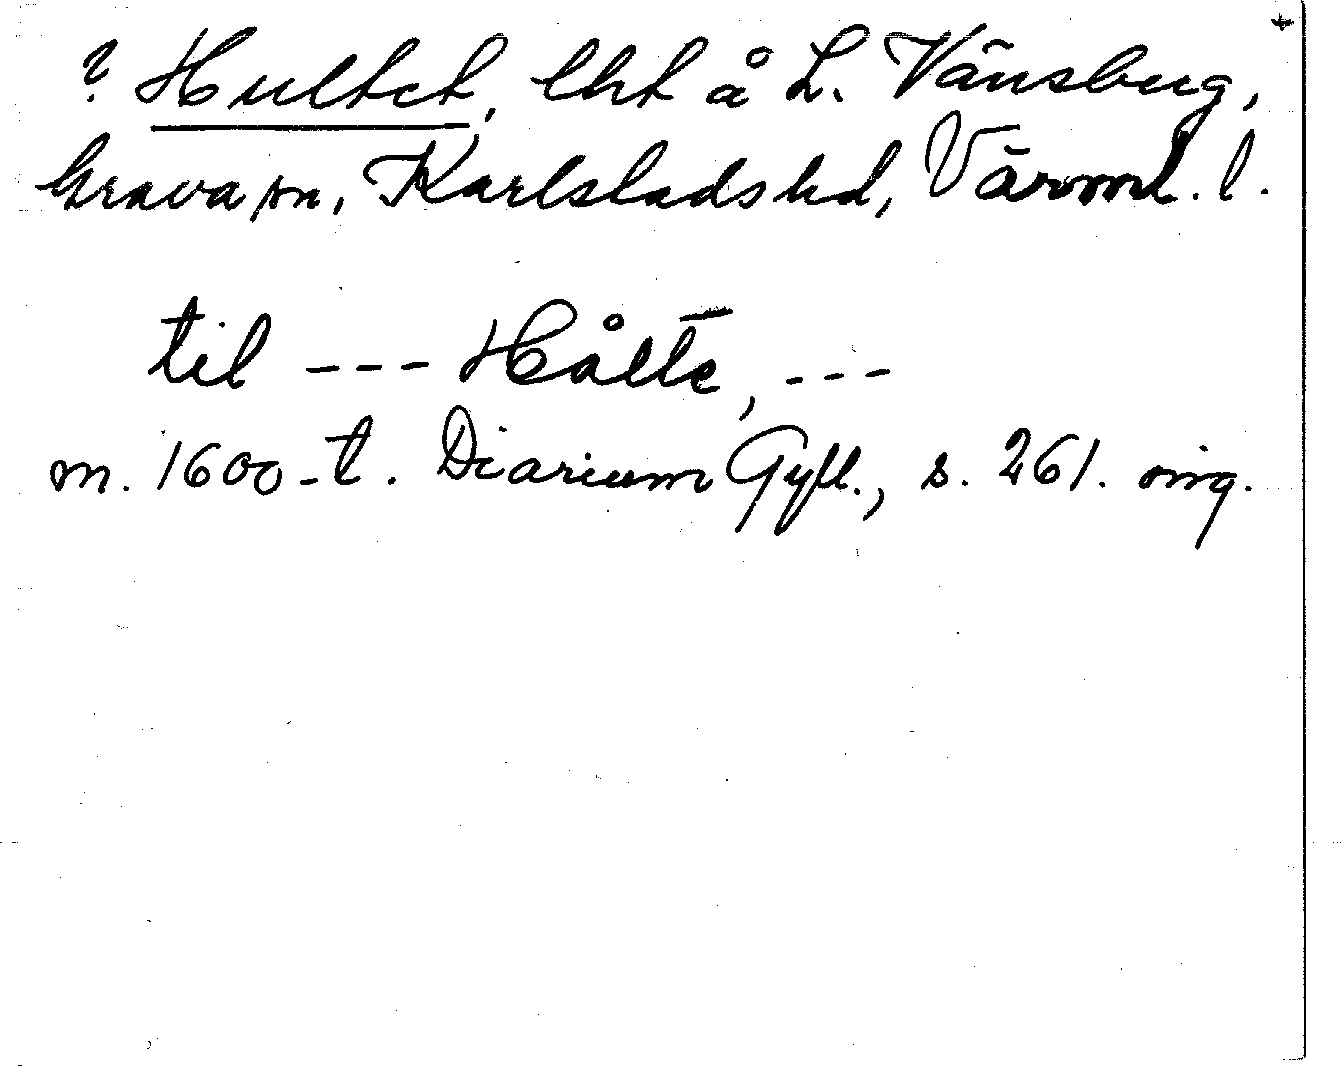 ? Hultet, lht å L. Vänsberg,
Grava sn, Karlstads hd, Värml. l.
til --- Hålte, ---
m. 1600-t. Diarium Gyll., s. 261. ing.